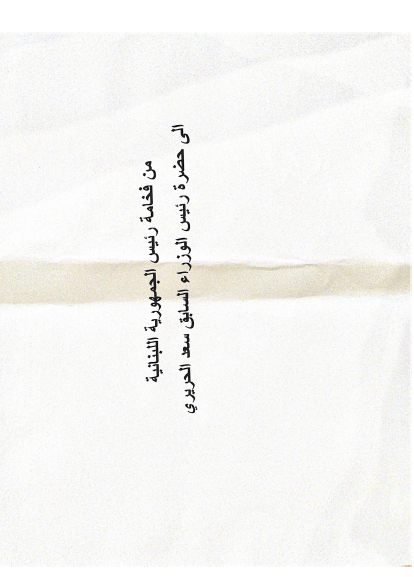 من فخامة رئيس الجمهورية اللبنانية
الى حضرة رئيس الوزراء السابق سعد الحريري